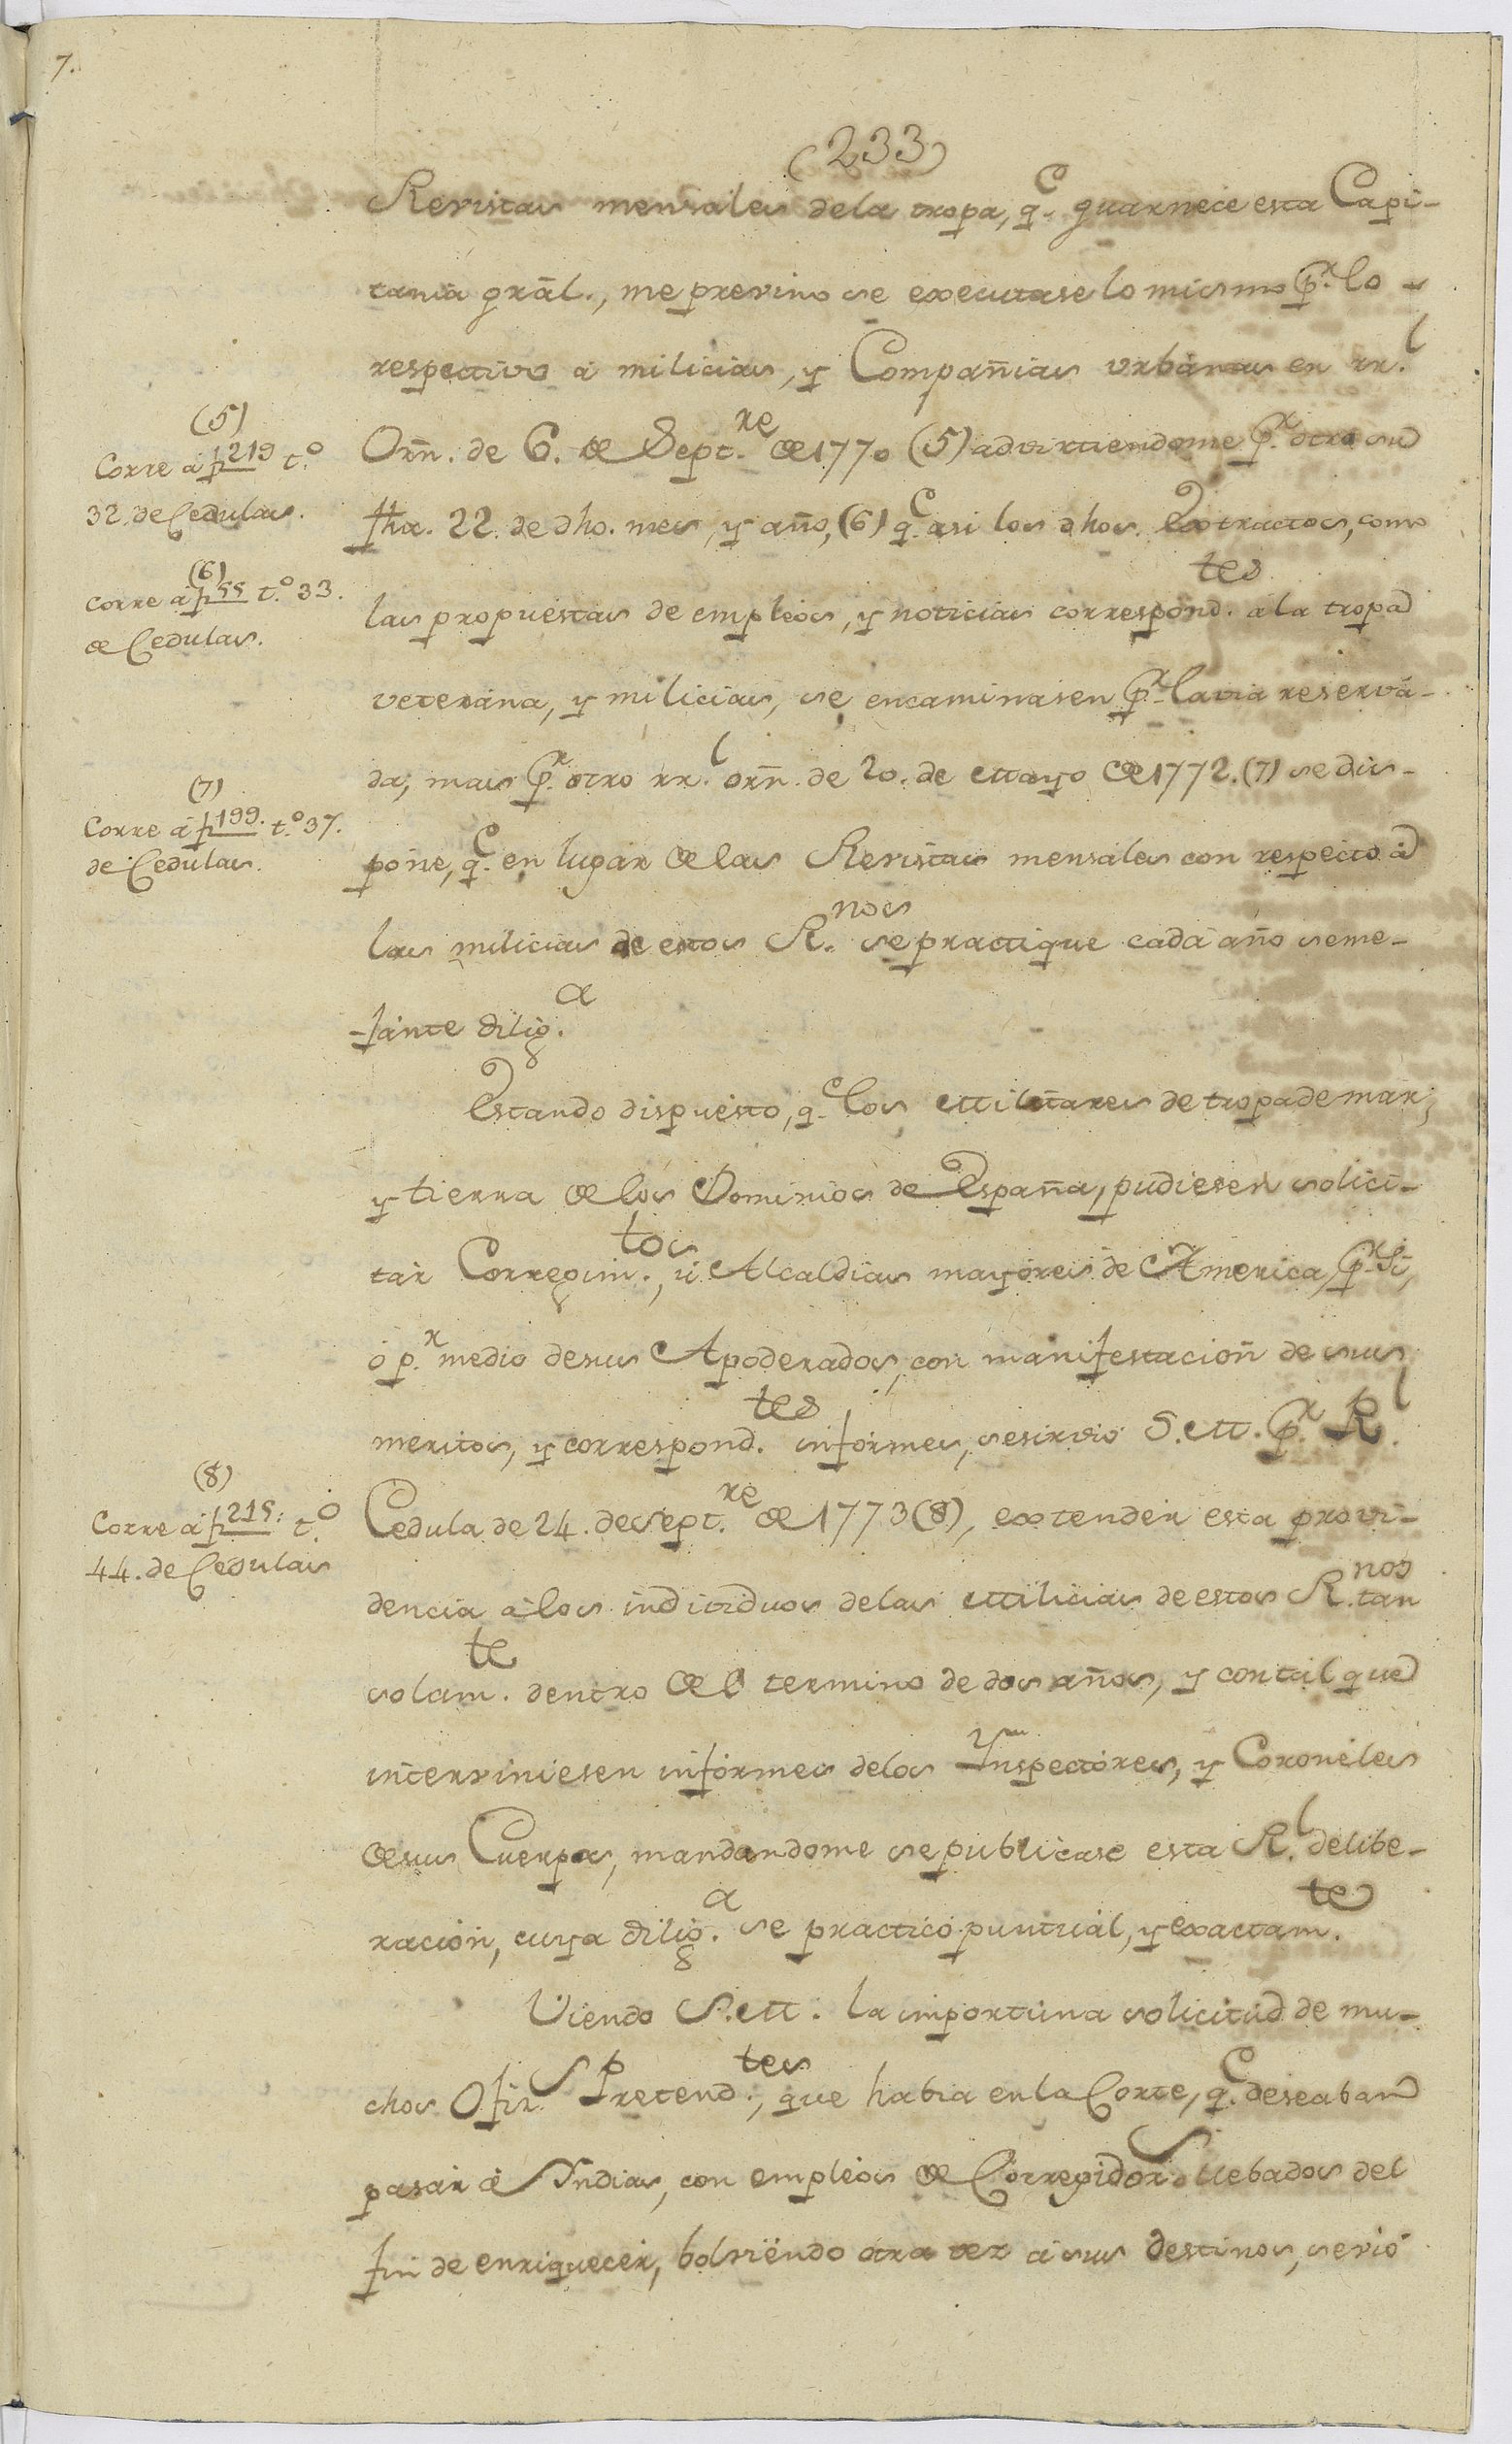 7.
(233)
Revistas mensales dela tropa, q.e guarnece esta Capi-
tania grãl., me previno se executase lo mismo p.r lo
respectivo á milicias, y Compañias urbanas en rr.l
Orñ. de 6. de Sept.re de 1770 (5) advirtiendome p.r otra su
(5)
Corre á f 219 t.o
32. de Cedulas.
fha. 22. de dho. mes, y año, (6) q.e asi los dhos. Extractos, como
(6)
Corre á f 55 t.o 33.
de Cedulas.
las propuestas de empleos, y noticias correspond.tes á la tropa
veterana, y milicias, se encaminasen p.r la via reserva-
da, mas p.r otro rr.l orñ. de 20. de Mayo de 1772. (7) se dis-
(7)
Corre á f 199. t.o 37.
de Cedulas.
pone, q.e en lugar de las Revistas mensales con respecto á
las milicias de estos R.nos se practique cada año seme-
-jante dilig.a
Estando dispuesto, q.e los Militares de tropa de mar,
y tierra de los Dominios de España, pudiesen solici-
tar Corregim.tos, ú Alcaldias mayores de America p.r si,
ó p.r medio de sus Apoderados, con manifestacioñ de sus
meritos, y correspond.tes informes, se sirvió S.M. p.r R.l
Cedula de 24. de Sept.re de 1773 (8), extender esta provi-
(8)
Corre á f 215: t.o
44. de Cedulas
dencia á los individuos de las Milicias de estos R.nos tan
solam.te dentro del termino de dos años, y con tal que
interviniesen informes de los Ynspectores, y Coroneles
de sus Cuerpos, mandandome se publicase esta R.l delibe-
ración, cuya dilig.a se practicó puntual, y exactam.te
Viendo S.M. la importuna solicitud de mu-
chos Ofiz.s Pretend.tes, que habia en la Corte, q.e deseaban
pasar á Yndias, con empleos de Corregidor.s llebados del
fin de enriquecer, bolviendo otra vez á sus destinos, se vió